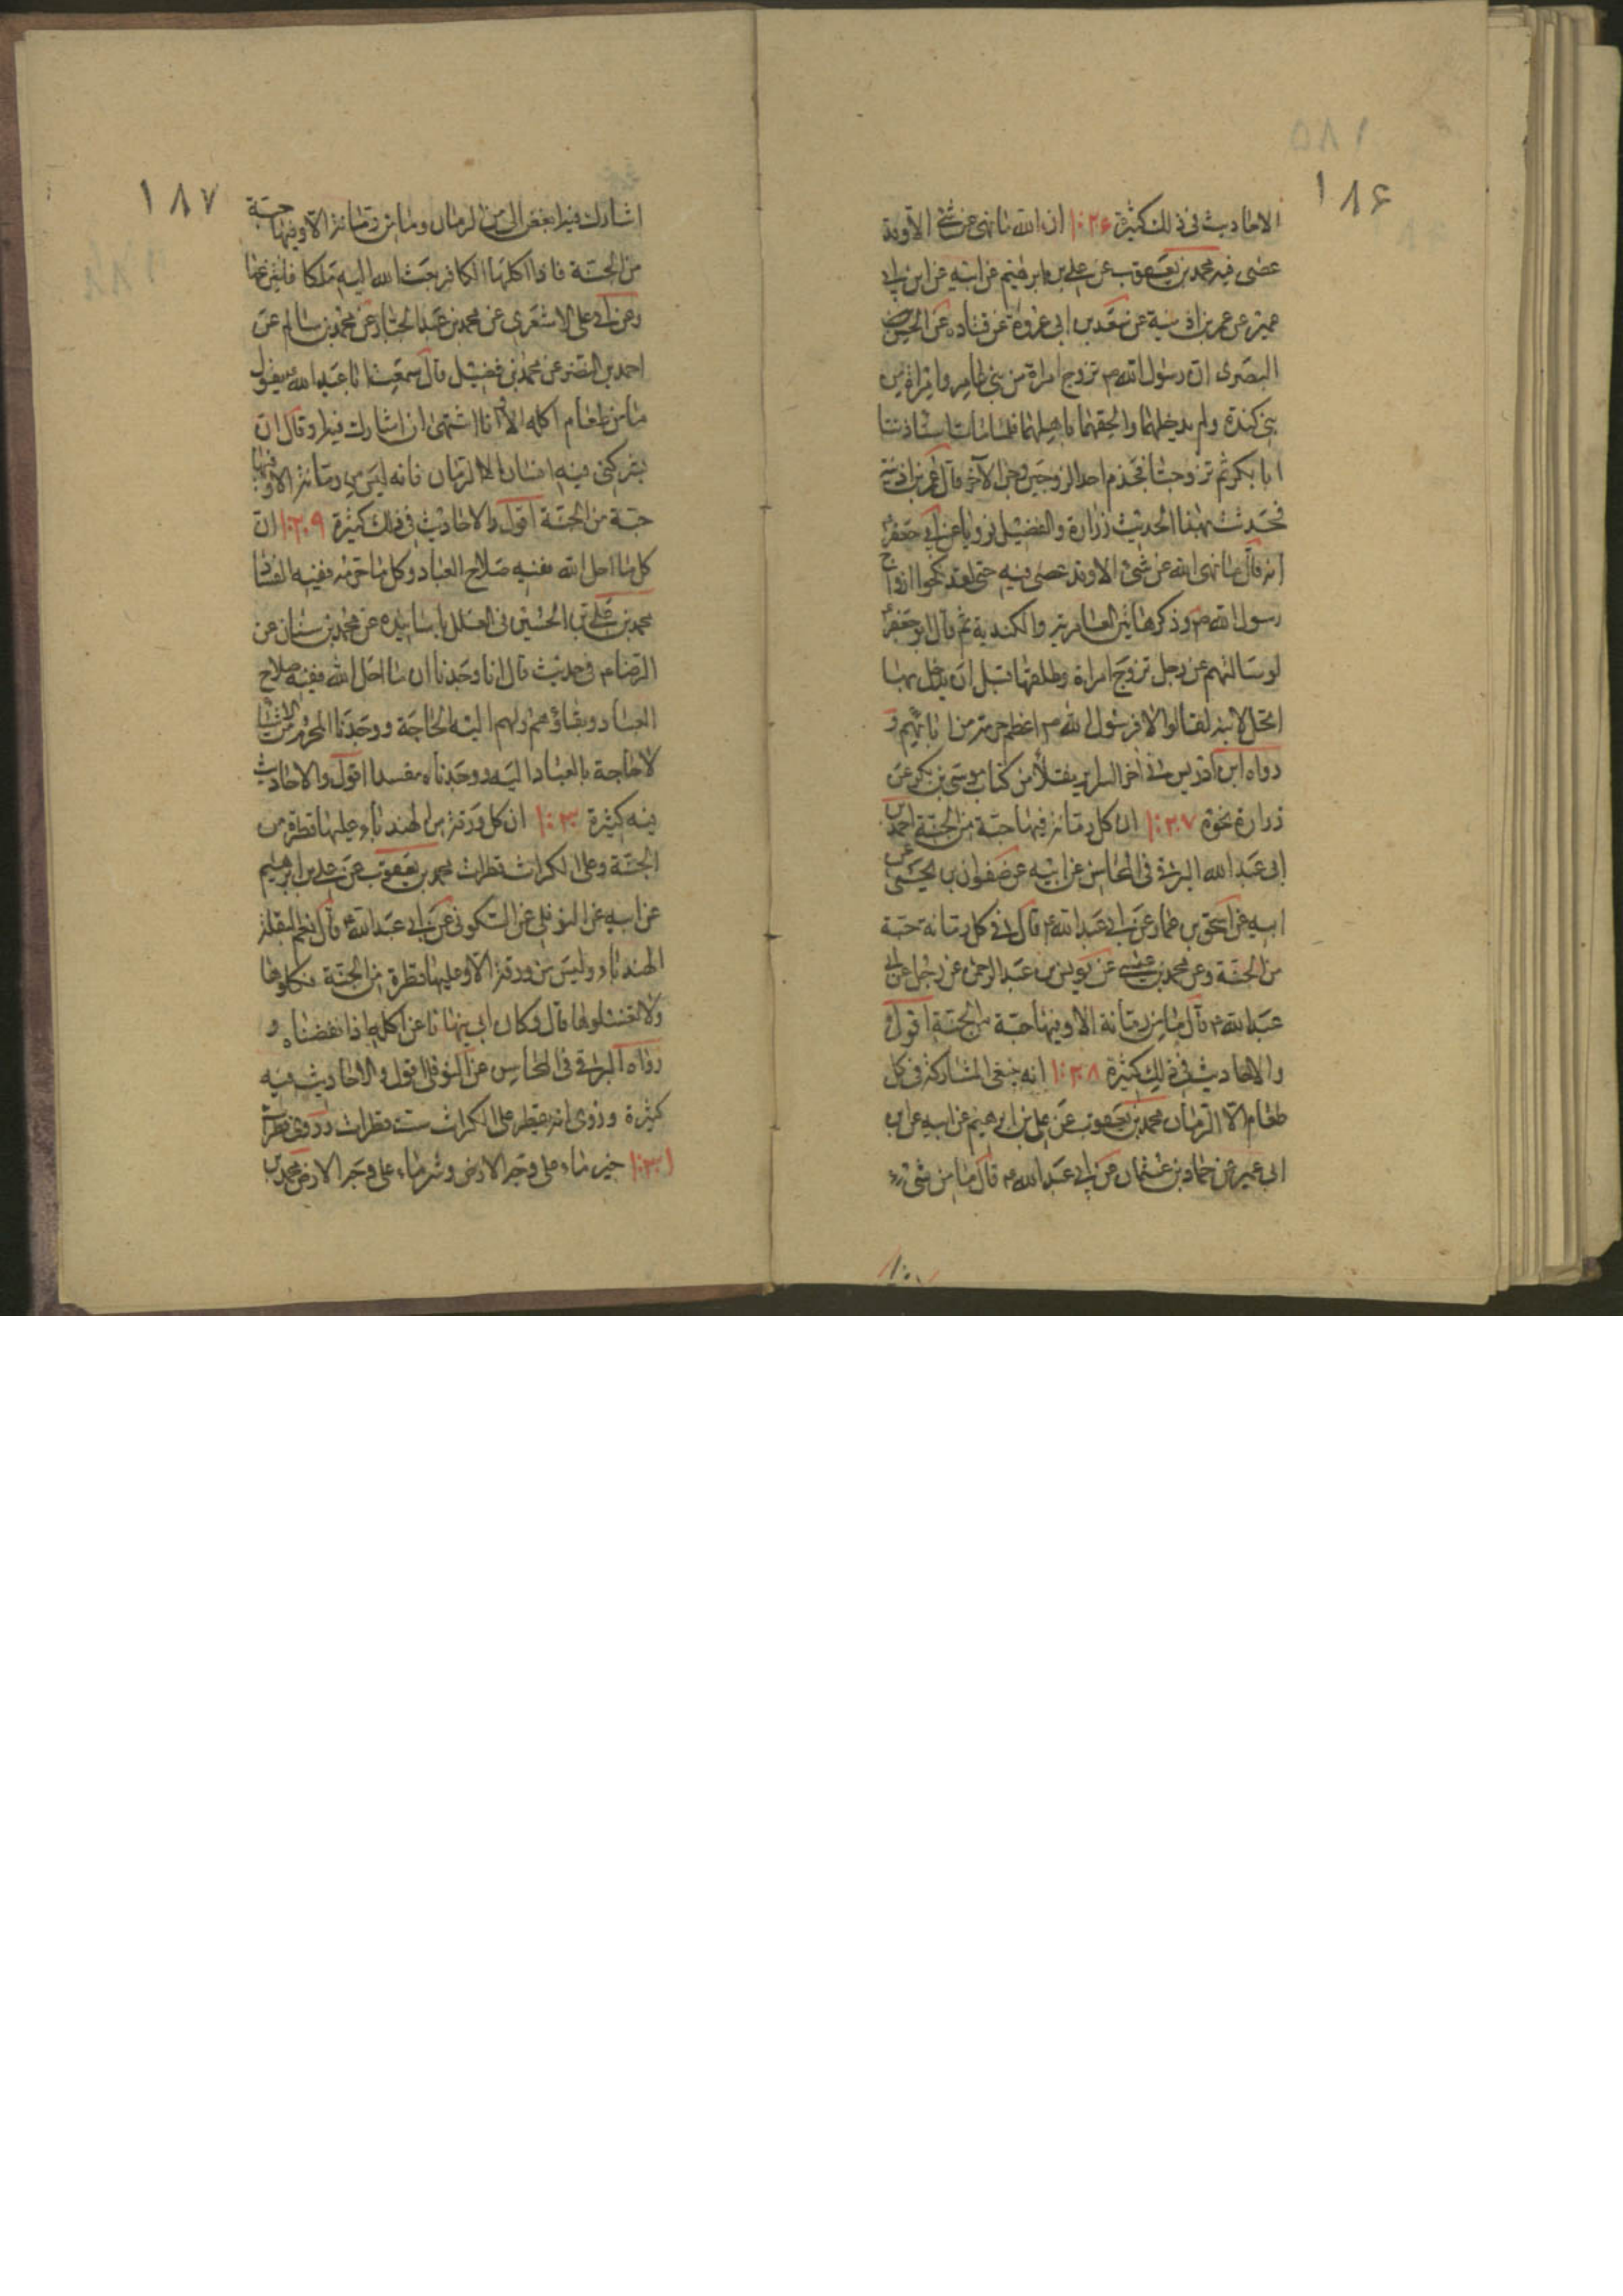 ١٨۶
الاحاديث فى ذلك كثيرة ١٠٢۶ ان الله ما نهى عن شئ الا وقد
عصى فيه محمد بن يعقوب عن على بن ابرهيم عن ابيه عن ابن ابى
عمير عن عمر بن اذينة عن سعد بن ابى عروة عن قتادة عن الحسن
البصرى ان رسول الله ص تزوج امراة من بنى عامر وامراة من
بنى كندة ولم يدخل بهما والحقهما باهلهما فلما مات استاذنتا
ابا بكر ثم تزوجتا فجذم احد الزوجين وجن الآخر قال عمر بن اذينة
فحدثت بهذا الحديث زرارة والفضيل فرويا عن ابى جعفر ع
انه قال ما نهى الله عن شئ الا وقد عصى فيه حتى لقد نكحوا ازواج
رسول الله ص وذكر هاتين العامرية والكندية ثم قال ابو جعفر ع
لو سالتهم عن رجل تزوج امراة وطلقها قبل ان يدخل بها
اتحل لابنه لقالوا لا فرسول الله ص اعظم حرمة من ابائهم و
رواه ابن ادريس فى آخر السراير نقلاً من كتاب موسى بن بكر عن
زرارة نحوه ١٠٢٧ ان كل رمانة فيها حبة من الجنة احمد بن
ابى عبد الله البرقى فى المحاسن عن ابيه عن صفوان بن يحيى عن
ابيه عن اسحق بن عمار عن ابى عبد الله ع قال فى كل رمانة حبة
من الجنة وعن محمد بن عيسى عن يونس بن عبد الرحمن عن رجل عن ابى
عبد الله ع قال ما من رمانة الا وفيها حبة من الجنة اقول
والاحاديث فى ذلك كثيرة ١٠٢٨ انه ينبغى المشاركة فى كل
طعام الا الرمان محمد بن يعقوب عن على بن ابرهيم عن ابيه عن ابن
ابى عمير عن حماد بن عثمان عن ابى عبد الله ع قال ما من شئ
١٨٧
اشارك فيه ابغض الى من الرمان وما من رمانة الا وفيها حبة
من الجنة فاذا اكلها الكافر بعث الله اليه ملكا فانتزعها
وعن ابى على الاشعرى عن محمد بن عبد الجبار عن محمد بن سالم عن
احمد بن النضر عن محمد بن فضيل قال سمعت ابا عبد الله ع يقول
ما من طعام اكله الا وانا اشتهى ان اشارك فيه وقال ان
يشركنى فيه انسان الا الرمان فانه ليس من رمانة الا وفيها
حبة من الجنة اقول والاحاديث فى ذلك كثيرة ١٠٢٩ ان
كل ما احل الله ففيه صلاح العباد وكل ما حرمه ففيه الفساد
محمد بن على بن الحسين فى العلل باسانيده عن محمد بن سنان عن
الرضا ع فى حديث قال انا وجدنا ان ما احل الله ففيه صلاح
العباد وبقاؤهم ولهم اليه الحاجة ووجدنا المحرم من الاشياء
لا حاجة بالعباد اليه ووجدناه مفسدا اقول والاحاديث
فيه كثيرة ١٠٣٠ ان كل ورقة من الهندباء عليها قطرة من
الجنة وعلى الكراث قطرات محمد بن يعقوب عن على بن ابرهيم
عن ابيه عن النوفلى عن السكونى عن ابى عبد الله ع قال نعم البقلة
الهندباء وليس من ورقة الا وعليها قطرة من الجنة فكلوها
ولا تنفضوها قال وكان ابى ينهانا عن اكله اذا نفضناه و
رواه البرقى فى المحاسن عن النوفلى اقول والاحاديث فيه
كثيرة وروى انه يقطر على الكراث ست قطرات وروى قطرات
١٠٣١ خير ماء على وجه الارض وشر ماء على وجه الارض محمد بن